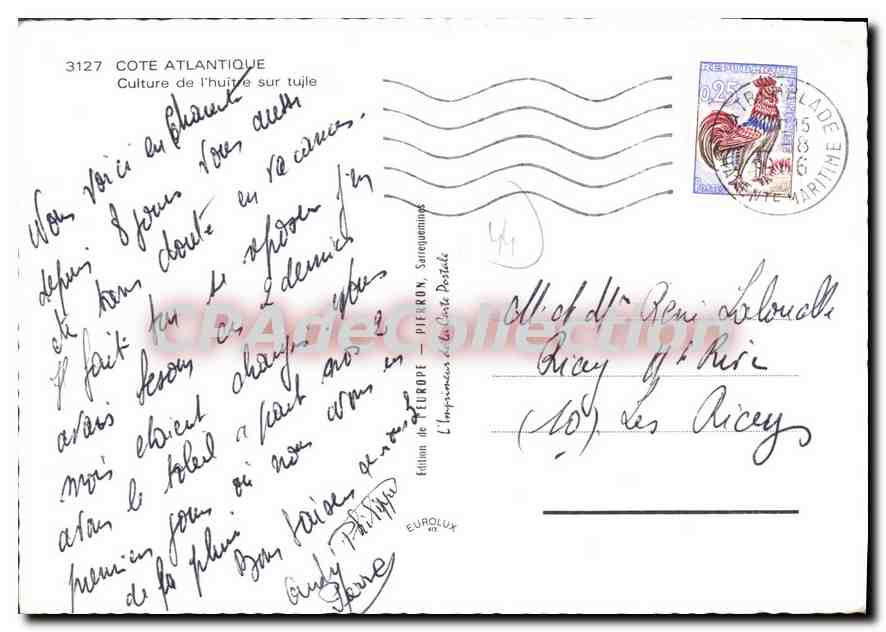 3127 COTE ATLANTIQUE
Culture de l'huître sur tuile
Nous voici en Charente
depuis 8 jours vous aussi
êtes sans doute en vacances.
Il fait bon se reposer j'en
avais besoin ces 2 derniers
mois étaient chargés. Nous
avons le soleil à part nos 2
premiers jours où nous avons eu
de la pluie
Bons baisers de nous 3
Philippe
Pierre
Edition de l'EUROPE — PIERRON, Sarreguemines
L'Imprimeur de la Carte Postale
EUROLUX
44
0,25
LA TREMBLADE
15
8
6
CHARENTE-MARITIME
M. et Mme René Lalouelle
Ricey Hte Rive
(10) Les Riceys
CPAdeCollection